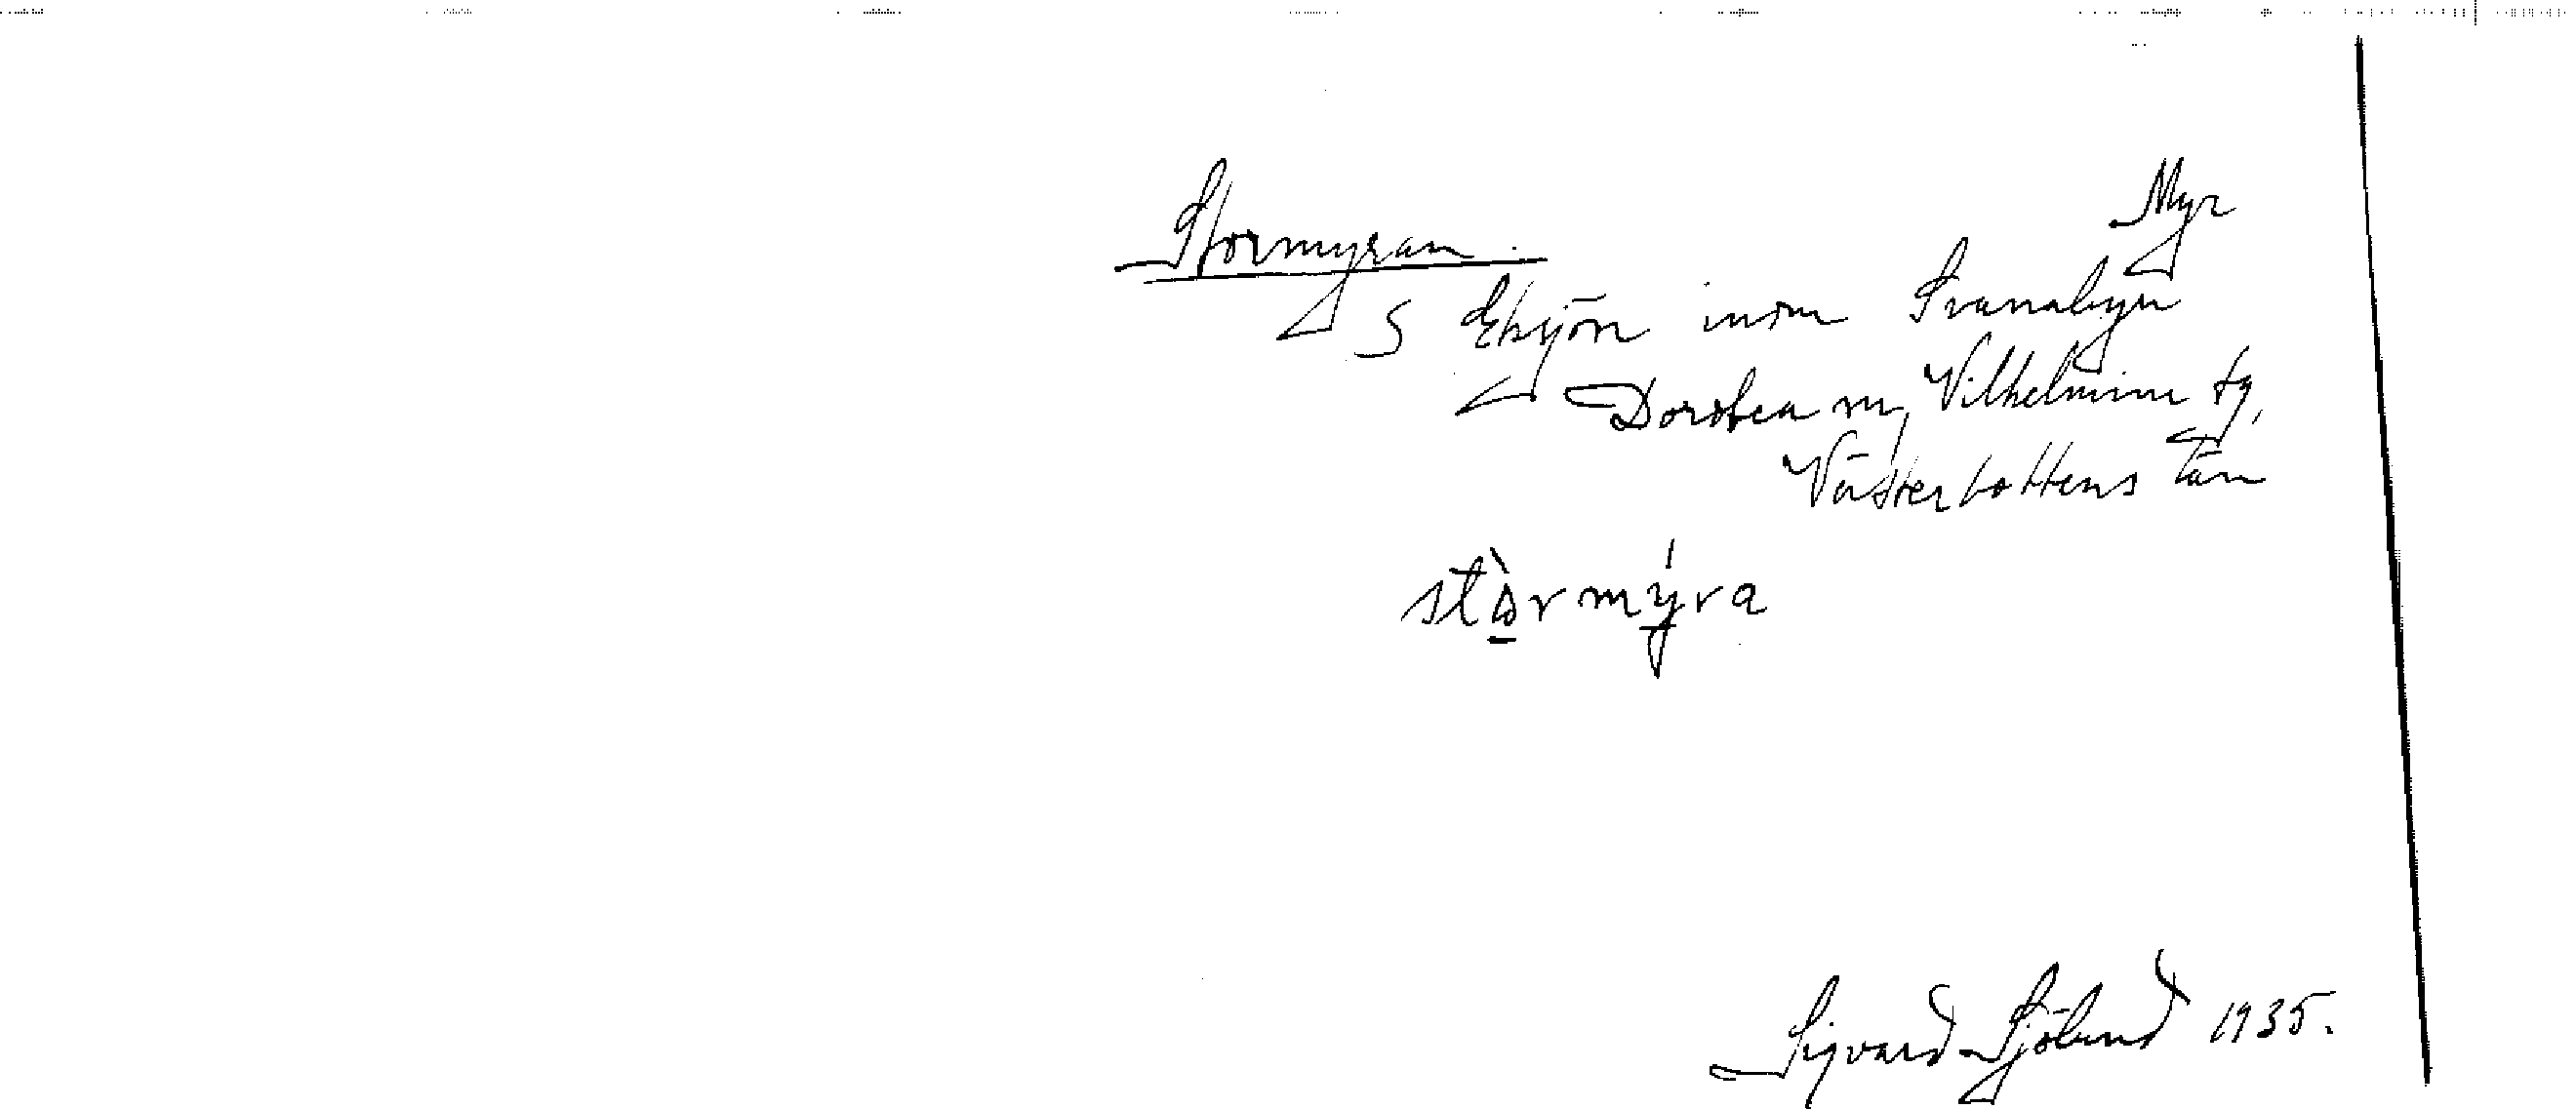 Myr
Stormyran.
S Eksjön inom Svanabyn
Dorotea sn, Vilhelmina tg,
Västerbottens län
stòrmýra
Sigvard Sjölund 1935.